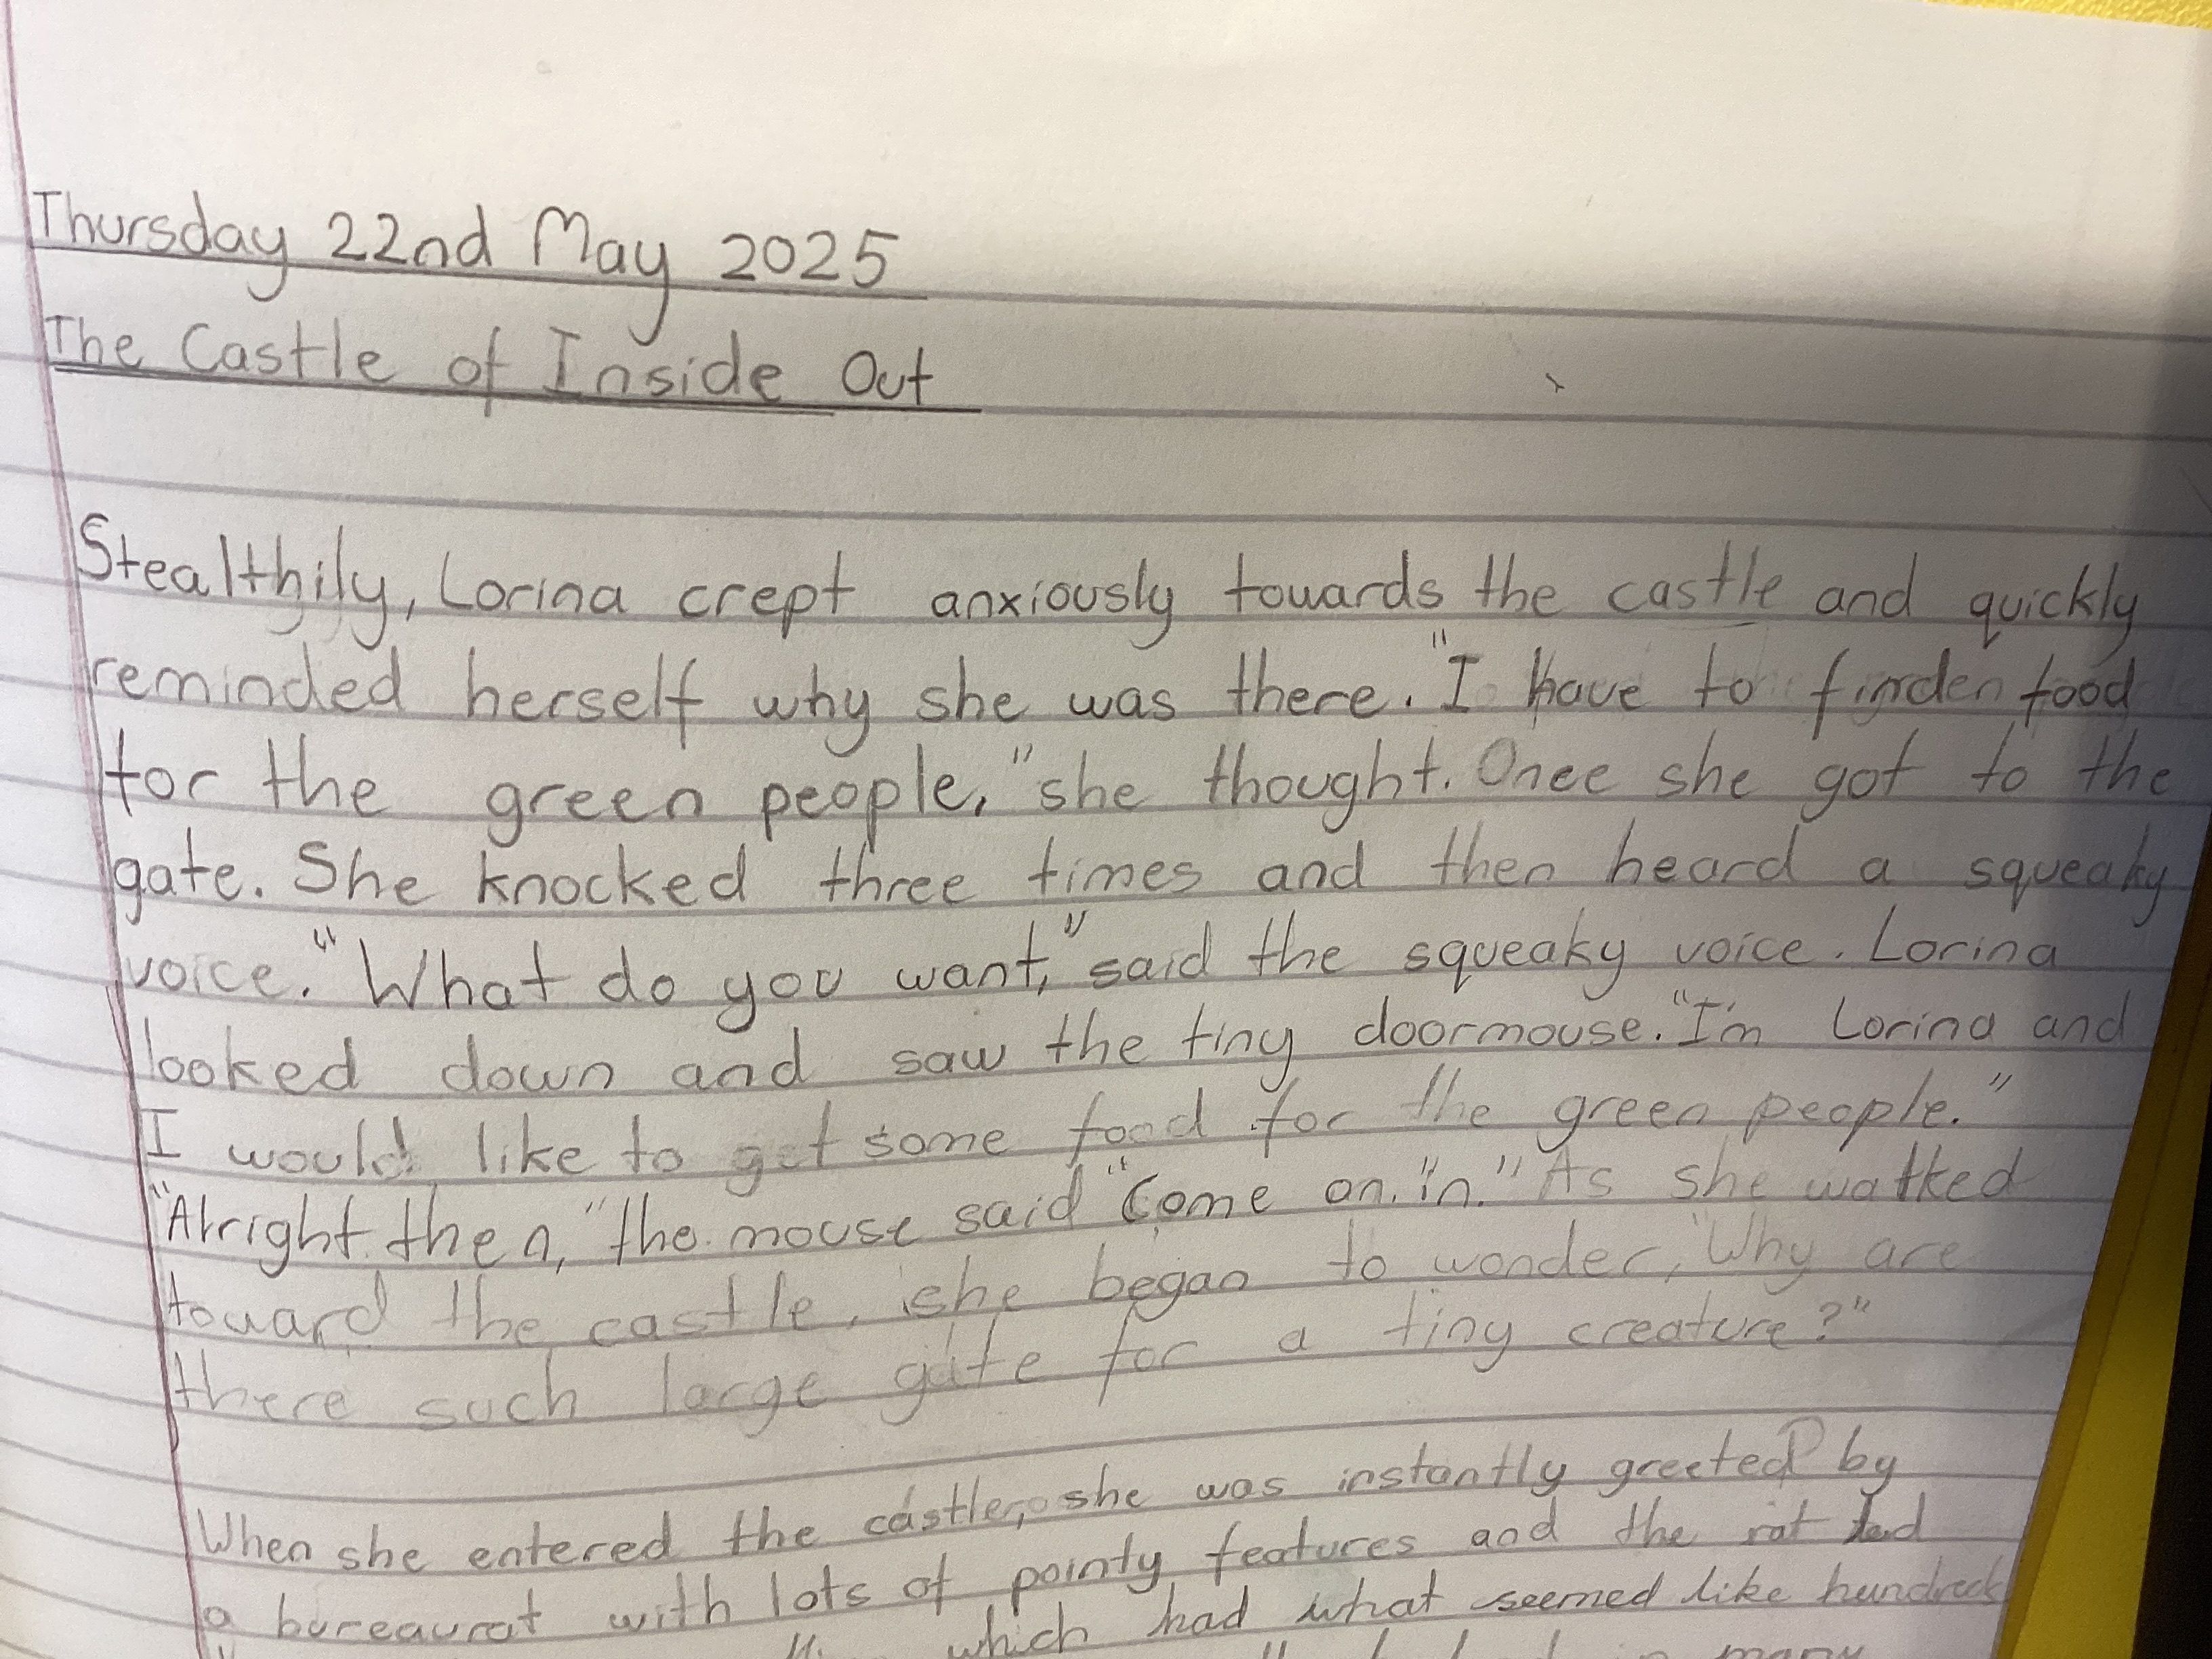 Thursday 22nd May 2025
The Castle of Inside Out
Stealthily, Lorina crept anxiously towards the castle and quickly
reminded herself why she was there. "I have to finden food
for the green people," she thought. Once she got to the
gate. She knocked three times and then heard a squeaky
voice. "What do you want," said the squeaky voice. Lorina
looked down and saw the tiny doormouse. "I'm Lorina and
I would like to get some food for the green people."
"Alright then," the mouse said "Come on in." As she walked
toward the castle, she began to wonder, "Why are
there such large gate for a tiny creature?"
When she entered the castle, she was instantly greeted by
a bureaurat with lots of pointy features and the rat had
which had what seemed like hundreds
many